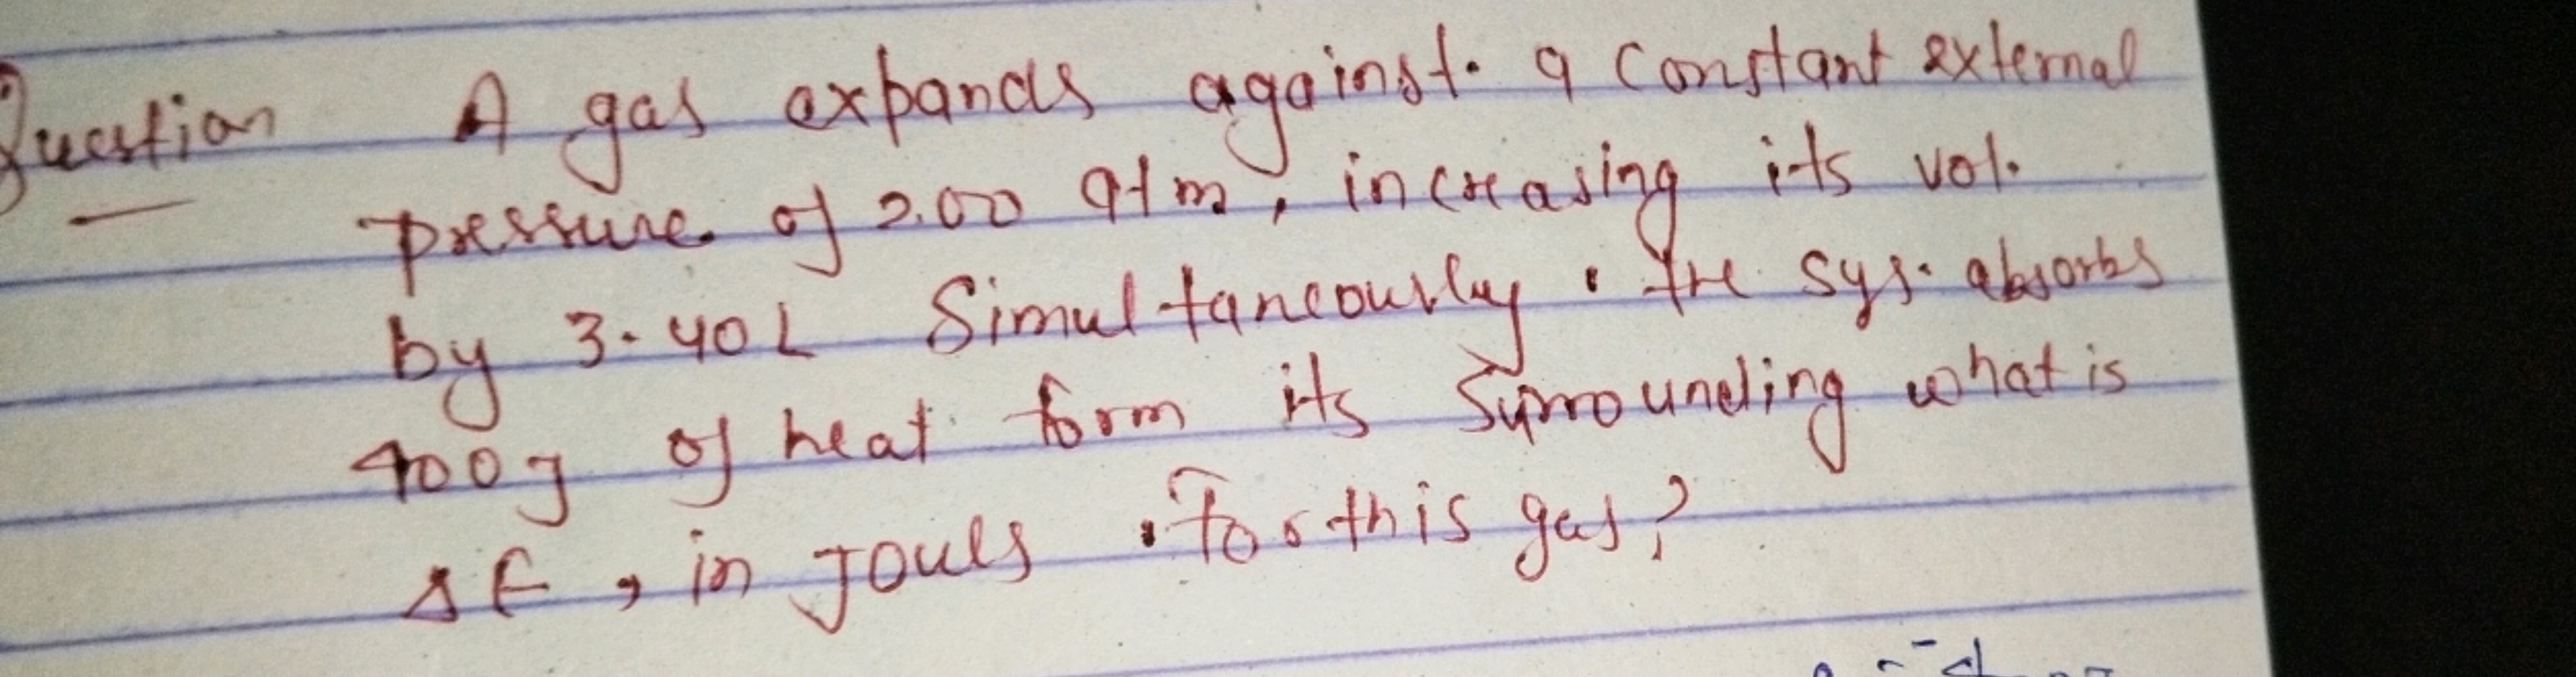 Question A gas expands against a constant external
pressure of 2.00 atm, increasing its vol.
by 3.40 L Simultaneously. the sys. absorbs
400 J of heat form its surrounding what is
ΔE, in Jouls. For this gas?